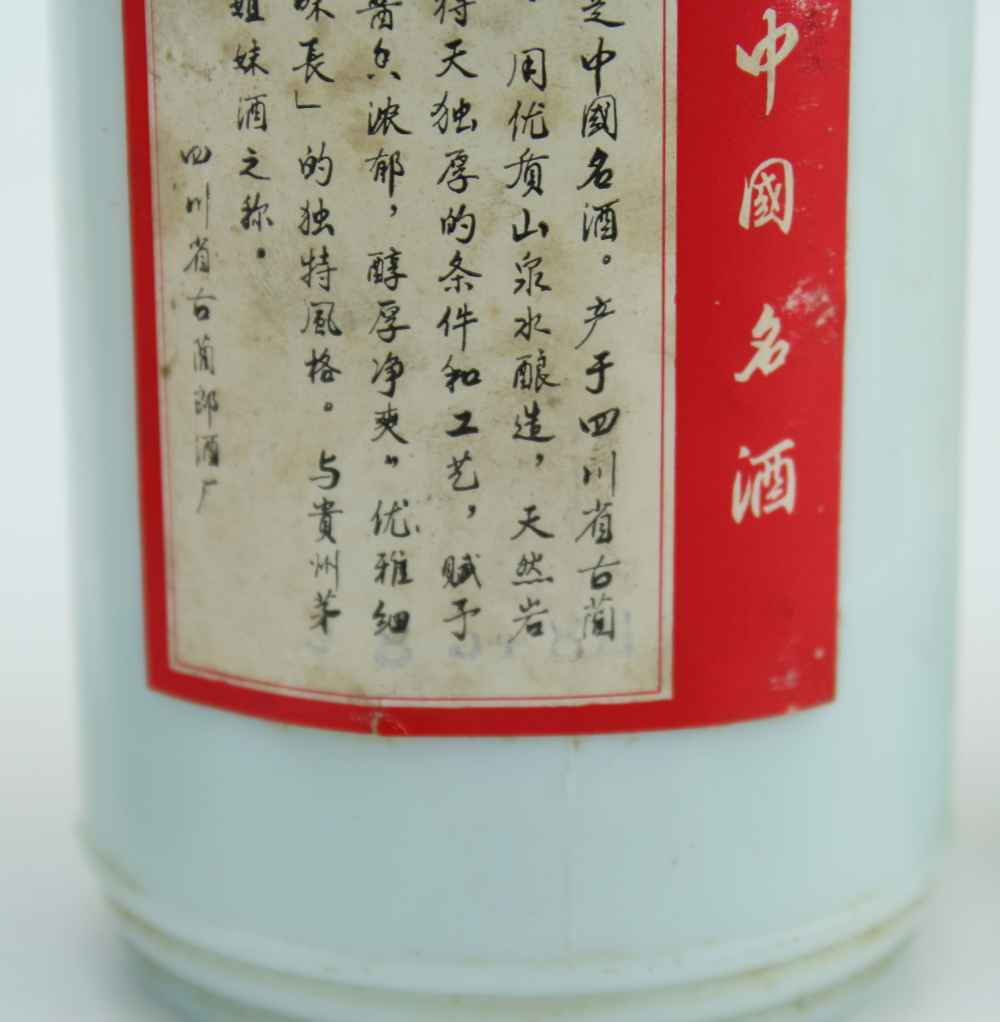 中國名酒
是中國名酒。产于四川省古蔺
用优质山泉水酿造，天然岩
得天独厚的条件和工艺，赋予
酱香浓郁，醇厚净爽"优雅细
味長」的独特風格。与貴州茅
姐妹酒之称。
四川省古蔺郎酒厂